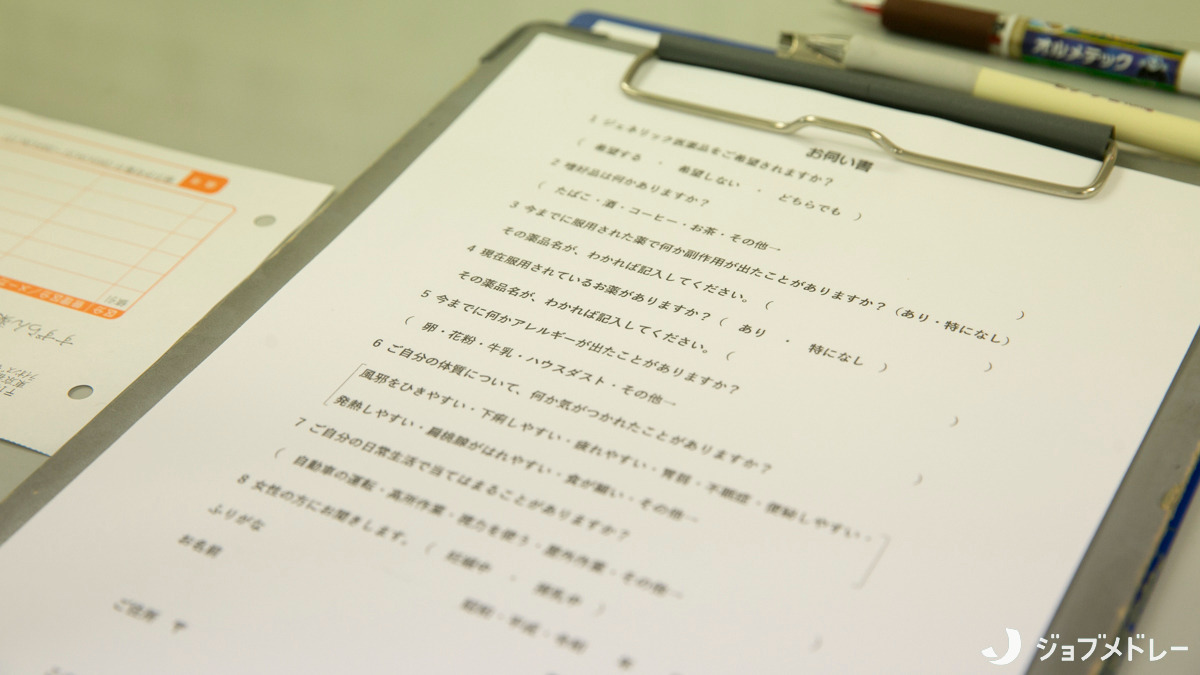 オルメテック
お伺い書
1 ジェネリック医薬品をご希望されますか?
( 希望する ・ 希望しない ・ どちらでも )
2 嗜好品は何かありますか?
( たばこ・酒・コーヒー・お茶・その他→ )
3 今までに服用された薬で何か副作用が出たことがありますか?(あり・特になし)
その薬品名が、わかれば記入してください。 ( )
4 現在服用されているお薬がありますか?( あり ・ 特になし )
その薬品名が、わかれば記入してください。 ( )
5 今までに何かアレルギーが出たことがありますか?
( 卵・花粉・牛乳・ハウスダスト・その他→ )
6 ご自分の体質について、何か気がつかれたことがありますか?
風邪をひきやすい・下痢しやすい・疲れやすい・胃弱・不眠症・便秘しやすい・
発熱しやすい・扁桃腺がはれやすい・食が細い・その他→
7 ご自分の日常生活で当てはまることがありますか?
( 自動車の運転・高所作業・視力を使う・屋外作業・その他→ )
8 女性の方にお聞きします。 ( 妊娠中 ・ 授乳中 )
ふりがな
お名前
ご住所 〒
ジョブメドレー